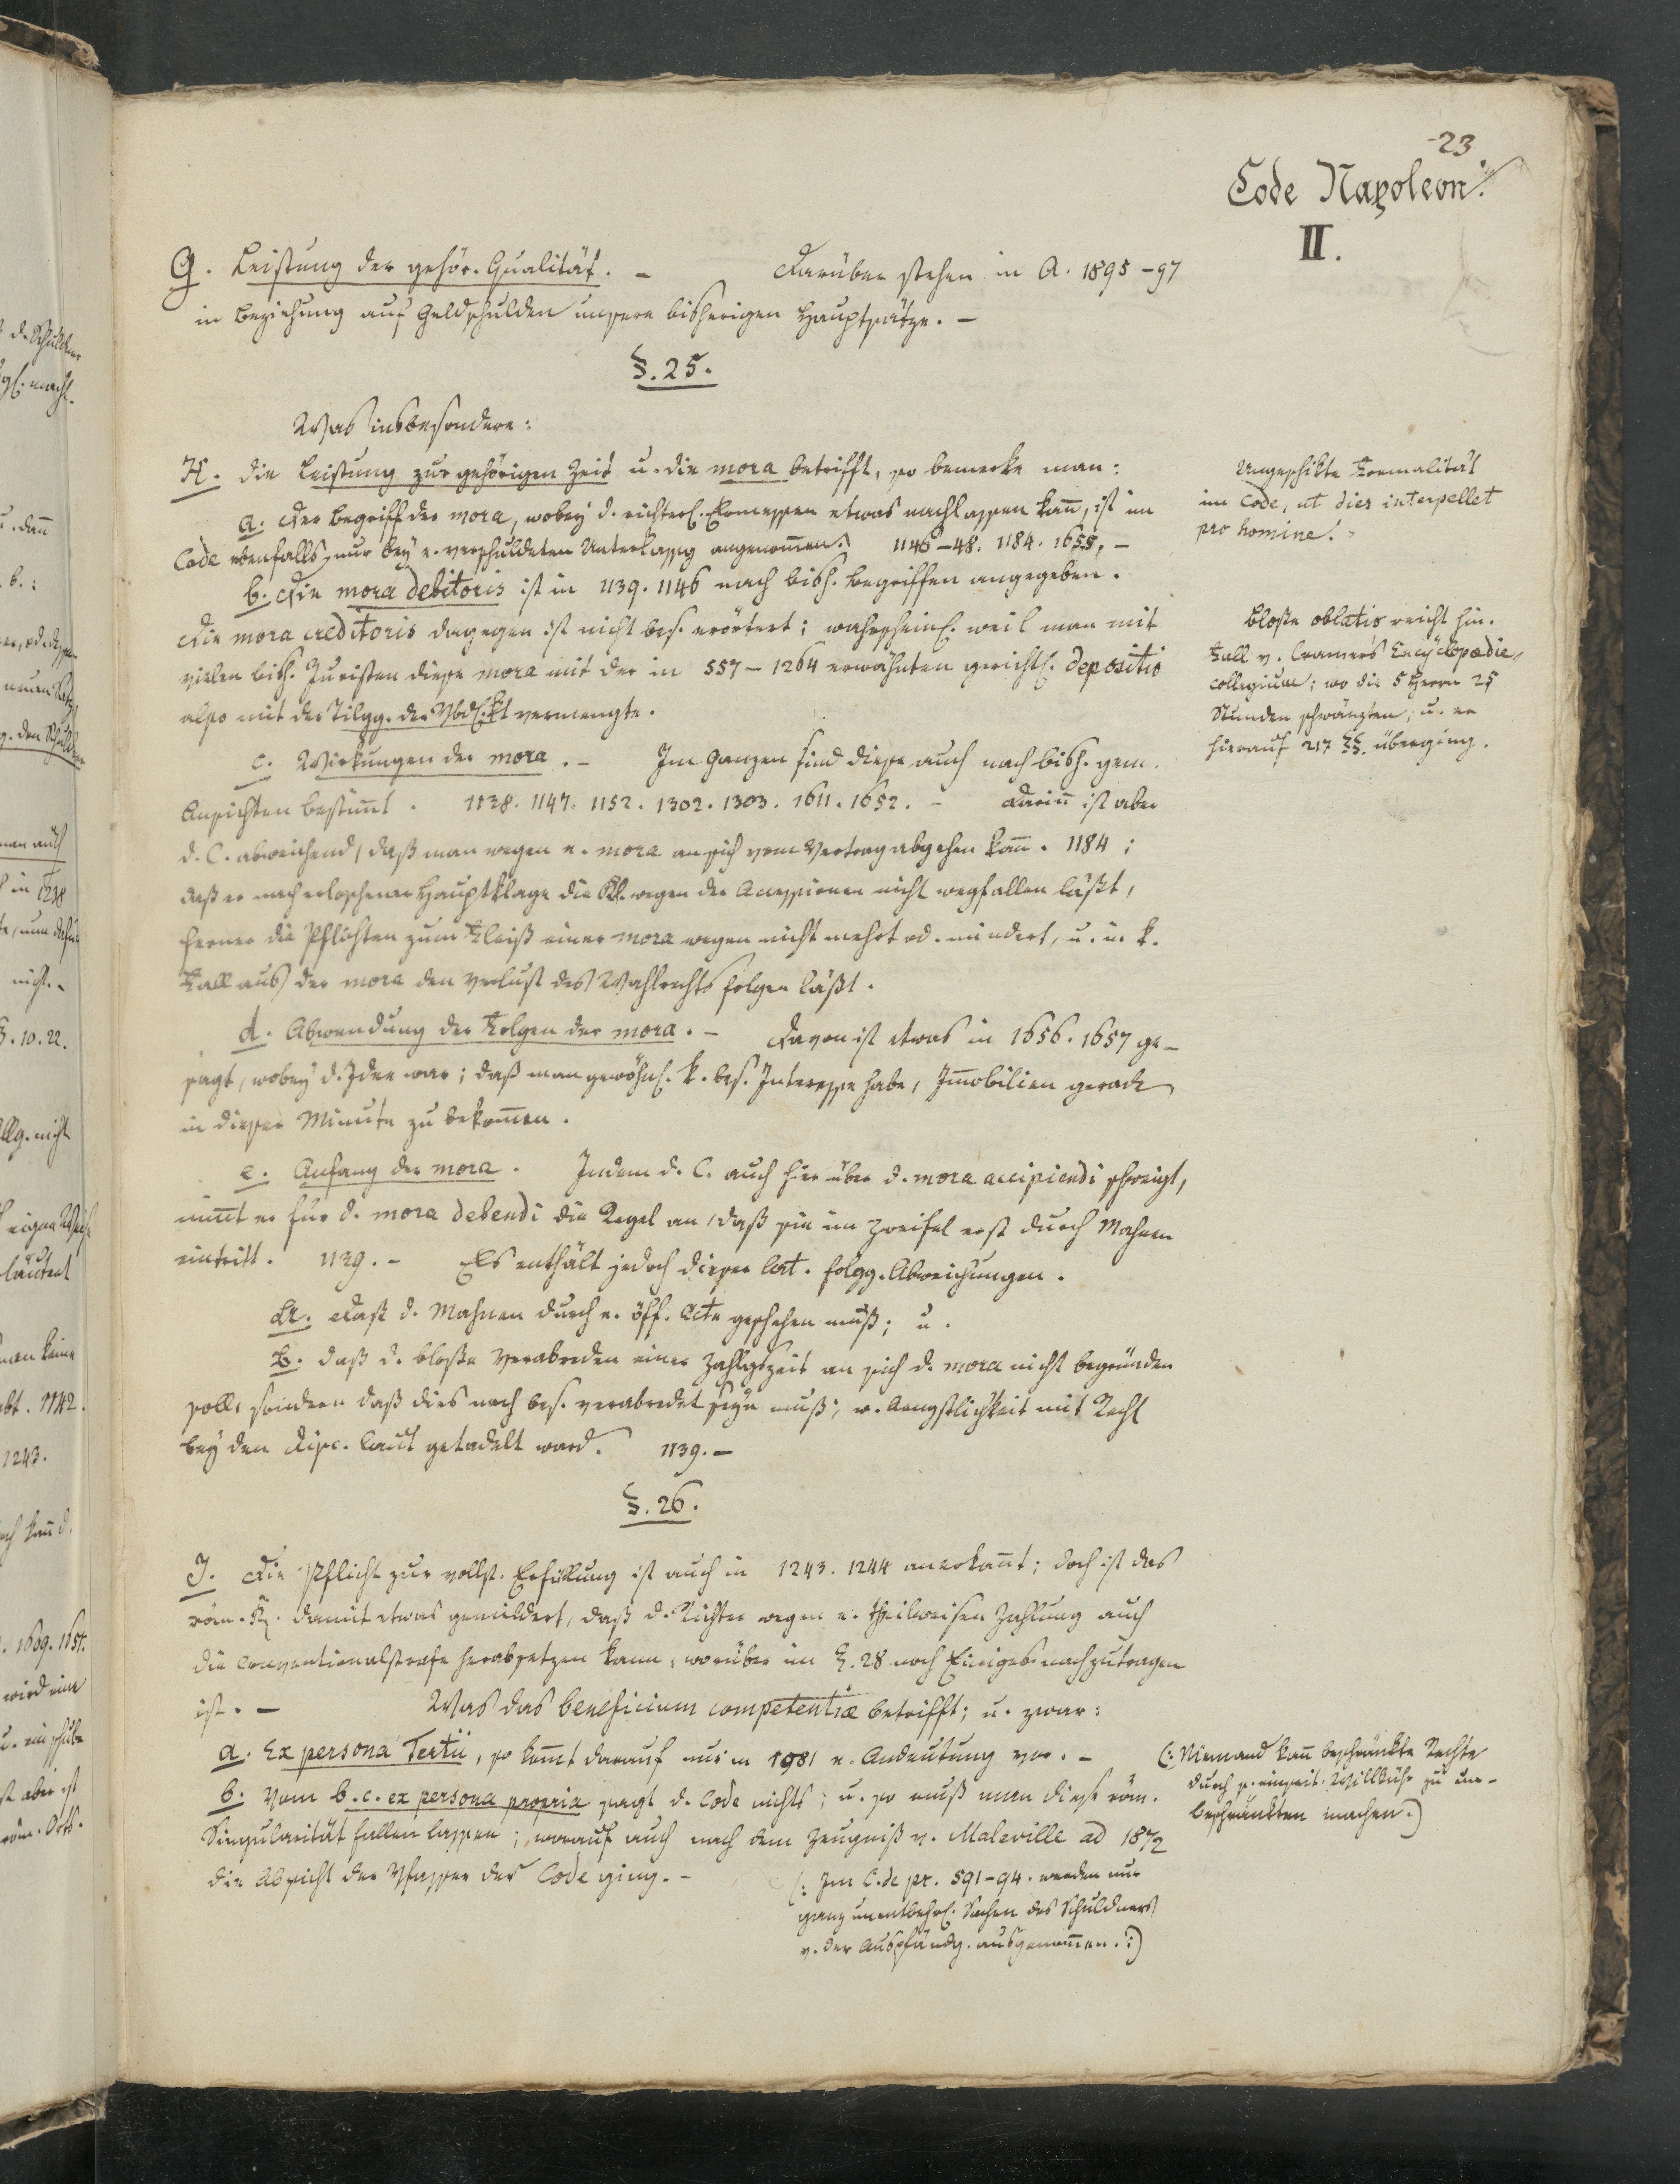 23
Code Napoleon.
II.
G. Leistung der gehör. Qualität. – Darüber stehen in A. 1895–97
in Beziehung auf Geldschulden unsere bisherigen Hauptsätze. –
§. 25.
Was insbesondere:
H. die Leistung zur gehörigen Zeit u. die mora betrifft, so bemerke man:
a. Der Begriff der mora, wobey d. richterl. Ermessen etwas nachlassen kan̄, ist im
Code ebenfalls nur bey e. verschuldeten Unterlassg angenom̄en. 1146–48. 1184. 1655. –
b. Die mora debitoris ist in 1139. 1146 nach bish. Begriffen angegeben.
Die mora creditoris dagegen ist nicht bes. erörtert; wahrscheinl. weil man mit
vielen bish. Juristen diese mora mit der in 557–1264 erwähnten gerichtl. depositio
also mit der Tilgg. der Vbdl.kt vermengte.
c. Wirkungen der mora. – Im Ganzen sind diese auch nach bish. gem.
Ansichten bestim̄t. 1138. 1147. 1152. 1302. 1303. 1611. 1652. – Darin̄ ist aber
d. C. abweichend, daß man wegen e. mora an sich vom Vertrag abgehen kan̄. 1184;
daß er nach erloschener Hauptklage die Kl. wegen der Accessionen nicht wegfallen läßt,
ferner die Pflichten zum Fleiß einer mora wegen nicht mehrt od. mindert, u. in k.
Fall aus der mora den Verlust des Wahlrechts folgen läßt.
d. Abwendung der Folgen der mora. – Davon ist etwas in 1656. 1657 ge-
sagt, wobey d. Idee war; daß man gewöhnl. k. bes. Interesse habe, Im̄obilien gerade
in dieser Minute zu bekom̄en.
e. Anfang der mora. Indem d. C. auch hier über d. mora accipiendi schweigt,
nim̄t er für d. mora debendi die Regel an, daß sie im Zweifel erst durch Mahnen
eintritt. 1139. – Es enthält jedoch dieser Art. folgg. Abweichungen.
A. Daß d. Mahnen durch e. öff. Acte geschehen muß; u.
B. daß d. bloße Verabreden einer Zahlgszeit an sich d. mora nicht begründen
soll, sondern daß dies noch bes. verabredet seyn muß; w. Aengstlichkeit mit Recht
bey den Disc. laut getadelt ward. 1139. –
§. 26.
I. Die Pflicht zur vollst. Erfüllung ist auch in 1243. 1244 anerkan̄t; doch ist das
röm. R. damit etwas gemildert, daß d. Richter wegen e. theilweisen Zahlung auch
die Conventionalstrafe herabsetzen kann, worüber im §. 28 noch Einiges nachzutragen
ist. – Was das beneficium competentiæ betrifft; u. zwar:
a. Ex persona Tertii, so kom̄t darauf nur in 1981 e. Andeutung vor. –
b. Vom b. c. ex persona propria sagt d. Code nichts; u. so muß man diese röm.
Singularität fallen lassen; worauf auch nach dem Zeugniß v. Maleville ad 1872
die Absicht der Vfasser des Code ging. –
(: Im C. de pr. 591–94. werden nur
ganz unentbehrl. Sachen des Schuldners
v. der Auspfändg. ausgenom̄en. :)
Ungeschikte Formalität
im Code, ut dies interpellet
pro homine!
Bloße oblatio reicht hin.
Fall v. Cramer's Encyclopædie-
collegium; wo die 5 Herrn 25
Stunden schwänzten; u. er
hierauf 217 §§. überging.
(: Niemand kan̄ beschränkte Rechte
durch s. einseit. Willkühr zu un-
beschränkten machen. )